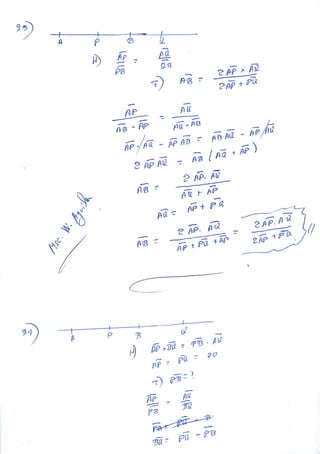 A P B Q
H) AP/PB = AQ/QB
T) AB = 2AP × AQ / 2AP + PQ
AP / AB - AP = AQ / AQ - AB
AP AQ - AP AB = AB AQ - AP AQ
2 AP AQ = AB (AQ + AP)
AB = 2 AP. AQ / AQ + AP
AQ = AP + PQ
AB = 2 AP. AQ / AP + PQ + AP = 2AP. AQ / 2AP + PQ
A P B Q
H) AP × BQ = PB . AQ
AP = PQ = 20
T) PB = ?
AP/PB = AQ/BQ
BQ = PQ - PB